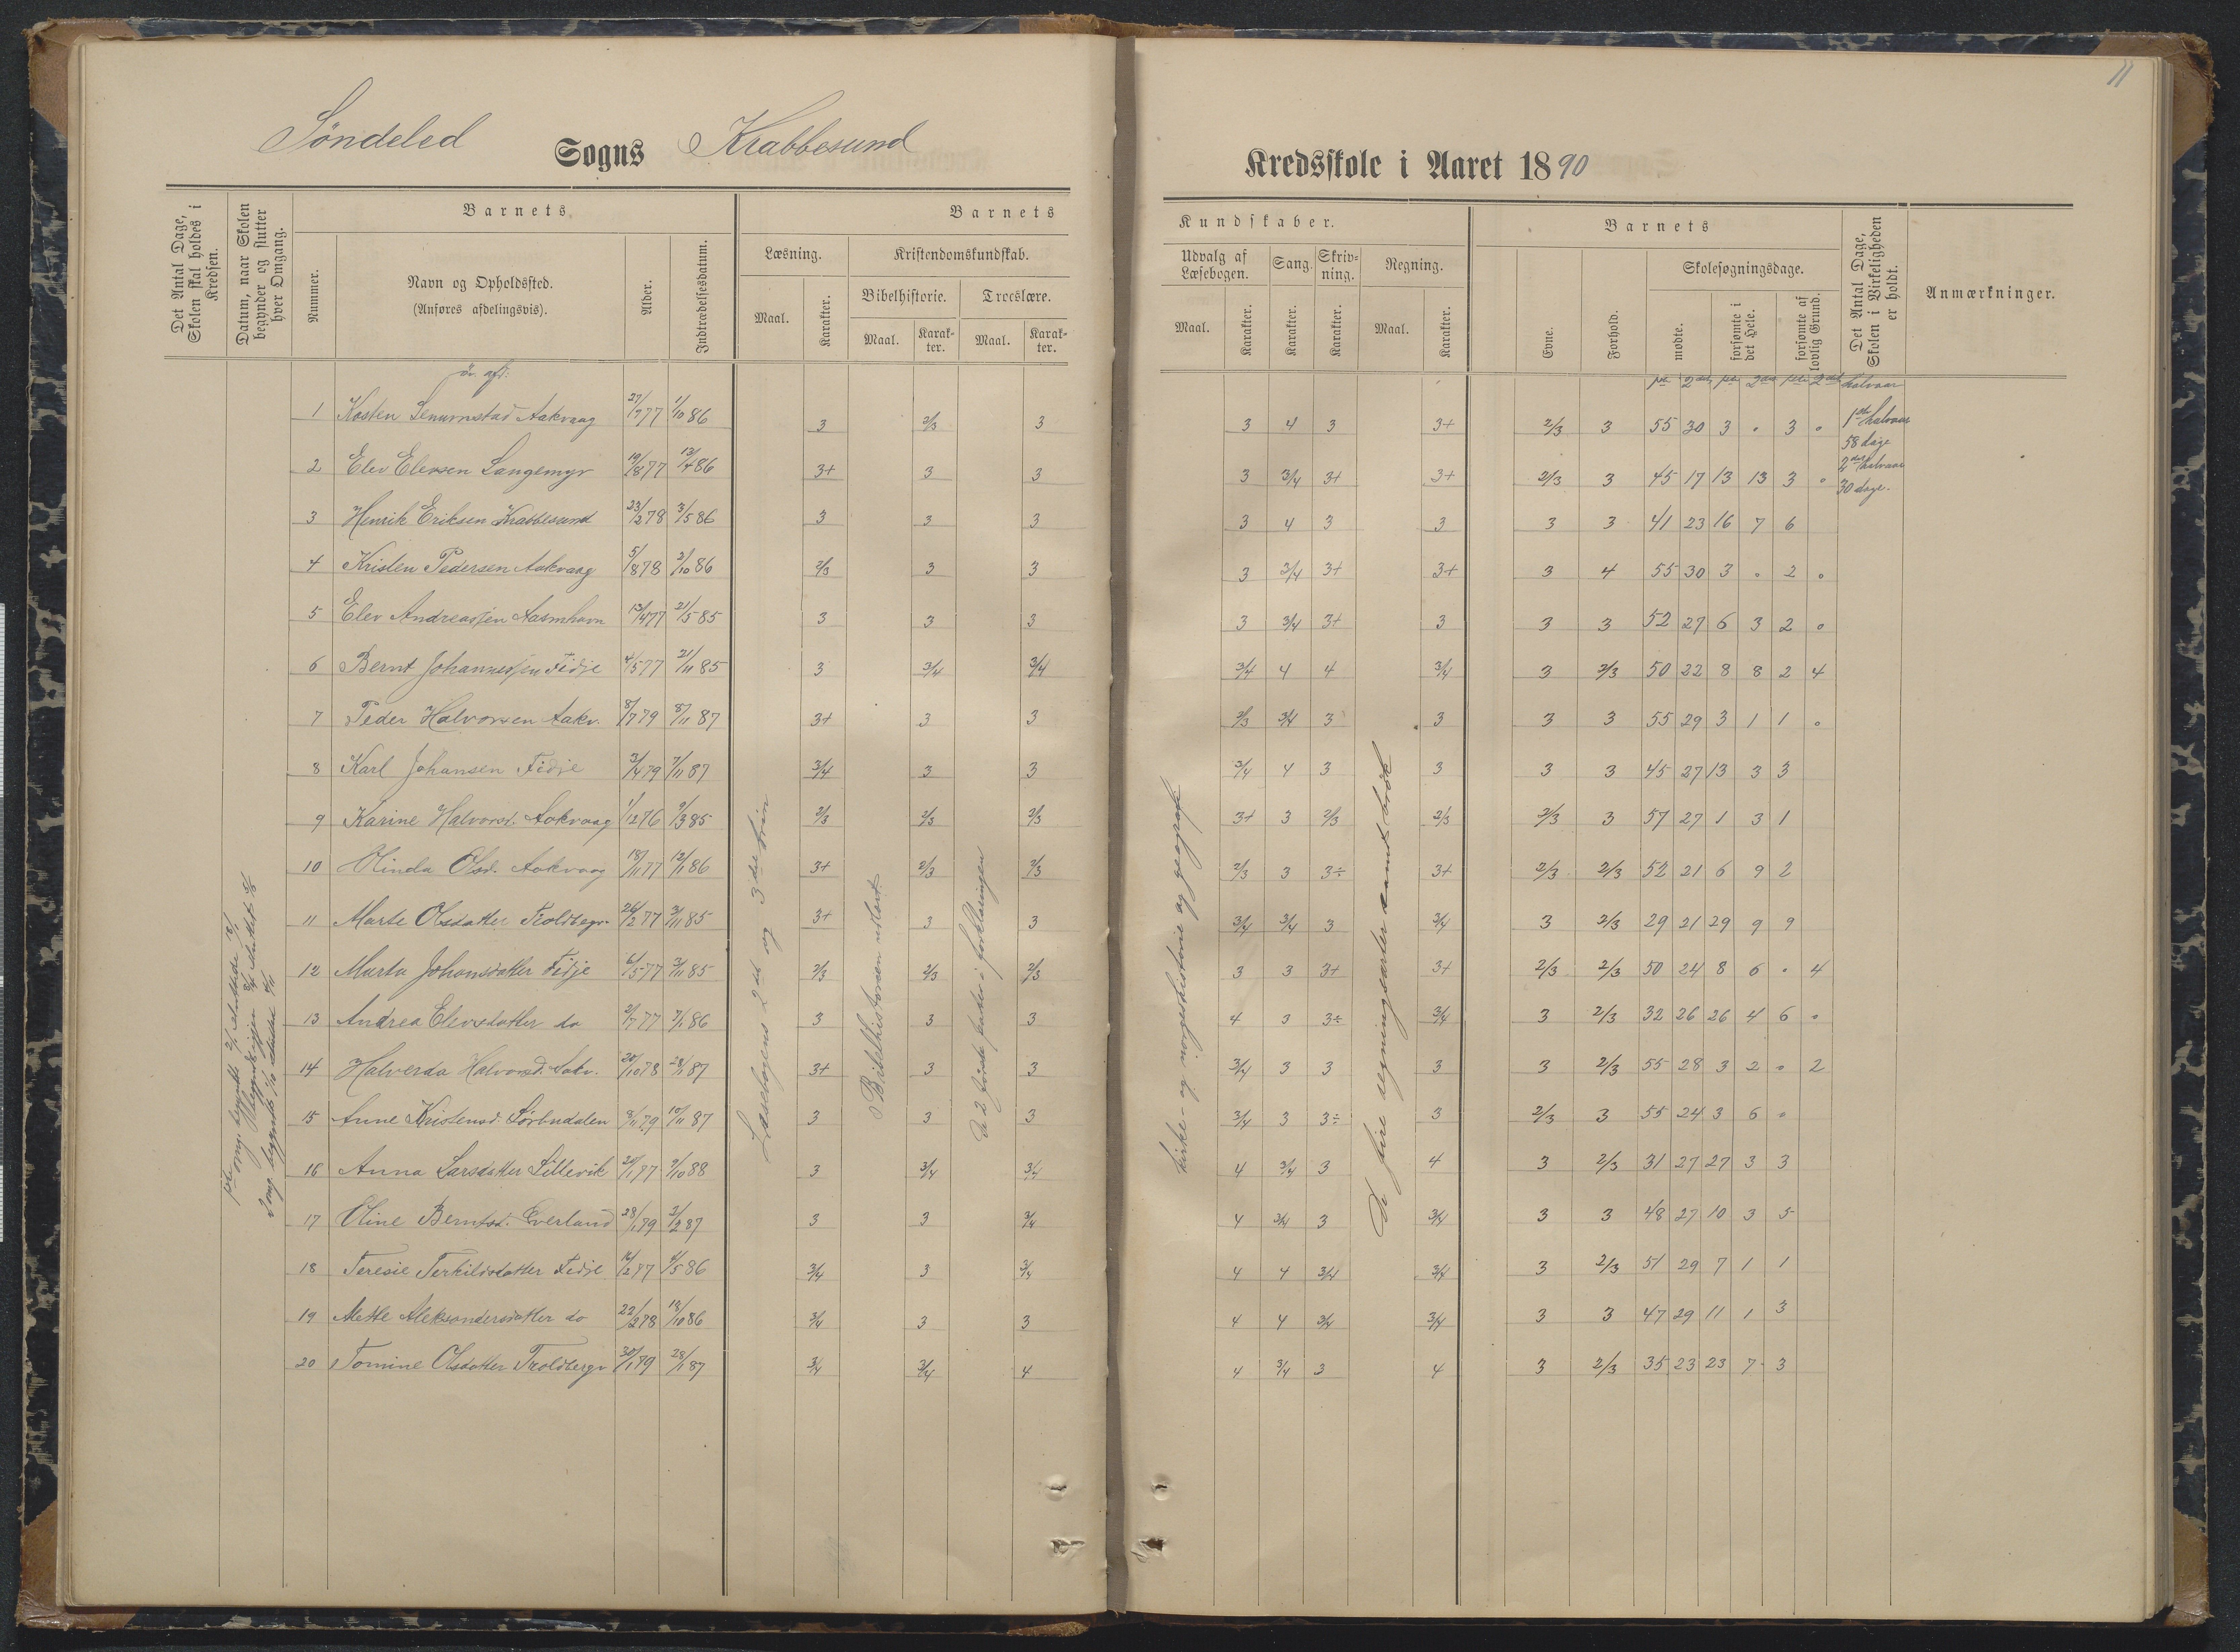 11
Søndeled Sogns Krabbesund Kredsskole i Aaret 1890
Det Antal Dage, Skolen skal holdes i Kredsen.
Datum, naar Skolen begynder og slutter hver Omgang.
Barnets
Nummer.
Navn og Opholdssted.
(Anføres afdelingsvis).
Alder.
Indtrædelsesdatum.
Barnets Kundskaber.
Læsning.
Maal. Karakter.
Kristendomskundskab.
Bibelhistorie. Troeslære.
Maal. Karakter. Maal. Karakter.
Udvalg af Læsebogen.
Maal. Karakter.
Sang.
Karakter.
Skrivning.
Karakter.
Regning.
Maal. Karakter.
Barnets
Evne. Forhold.
Skolesøgningsdage.
mødte. forsømte i det Hele. forsømte af lovlig Grund.
Det Antal Dage, Skolen i Virkeligheden er holdt.
Anmærkninger.
øv. afd:
1 Aakvaag 27/7 77 1/10 86 3 2/3 3 3 4 3 3+ 2/3 3 55 30 3 0 3 0
2 Elev Elevsen Langemyr 19/8 77 13/4 86 3+ 3 3 3 3/4 3+ 3+ 2/3 3 45 17 13 13 3 0
3 Henrik Eriksen Krabbesund 23/2 78 3/5 86 3 3 3 3 4 3 3 3 3 41 23 16 7 6
4 Kristen Pedersen Aakvaag 5/8 78 2/10 86 2/3 3 3 3 3/4 3+ 3+ 3 4 55 30 3 0 2 0
5 Elev Andreassen 21/5 85 3 3 3 3 3/4 3+ 3 3 3 52 27 6 3 2 0
6 Bernt Johannessen Fidje 4/5 77 21/11 85 3 3/4 3/4 3/4 4 4 3/4 3 2/3 50 22 8 8 2 4
7 Peder Halvorsen Aakv. 8/7 79 8/11 87 3+ 3 3 2/3 3/4 3 3 3 3 55 29 3 1 1 0
8 Karl Johansen Fidje 3/4 79 7/11 87 3/4 3 3 3/4 4 3 3 3 3 45 27 13 3 3
9 Karine Halvorsd. Aakvaag 1/12 76 9/3 85 2/3 2/3 2/3 3+ 3 2/3 2/3 2/3 3 57 27 1 3 1
10 Olinda Olsd. Aakvaag 18/11 77 12/1 86 3+ 2/3 2/3 2/3 3 3÷ 3+ 2/3 2/3 52 21 6 9 2
11 Marte Olsdatter Troldbergv. 26/2 77 3/11 85 3+ 3 3 3/4 3/4 3 3/4 3 2/3 29 21 29 9 9
12 Marta Johansdatter Fidje 6/5 77 3/11 85 2/3 2/3 2/3 3 3 3+ 3+ 2/3 2/3 50 24 8 6 0 4
13 Andrea Elevsdatter do 2/7 77 7/1 86 3 3 3 4 3 3÷ 3/4 3 2/3 32 26 26 4 6 0
14 Halverda Halvorsd. Aakv. 20/10 78 28/1 87 3+ 3 3 3/4 3 3 3 3 2/3 55 28 3 2 0 2
15 Anne Kristensd. 8/11 79 10/11 87 3 3 3 3/4 3 3÷ 3 2/3 3 55 24 3 6 0
16 Anna Larsdatter Lillevik 9/10 88 3 3/4 3/4 4 3/4 3 4 3 2/3 31 27 27 3 3
17 Oline Berntsd. Everland 28/1 79 3/2 87 3 3 3/4 4 3/4 3 3/4 3 3 48 27 10 3 5
18 Teresie Terkildsdatter Fidje 4/5 86 3/4 3 3/4 4 4 3/4 3/4 3 2/3 51 29 7 1 1
19 Mette Aleksandersdatter do 22/2 78 18/10 86 3/4 3 3 4 4 3/4 3/4 3 3 47 29 11 1 3
20 Tomine Olsdatter Troldbergv 30/1 79 28/1 87 3/4 3/4 4 4 3/4 3 4 3 2/3 35 23 23 7 3
Læsebogens 2det og 3die trin
Bibelhistorien utlært
de 2 første parter i forklaringen
kirke- og norgeshistorie og geografi
De fire regningsarter samt brøk
1ste halvaar
58 dage
2det halvaar
30 dage.